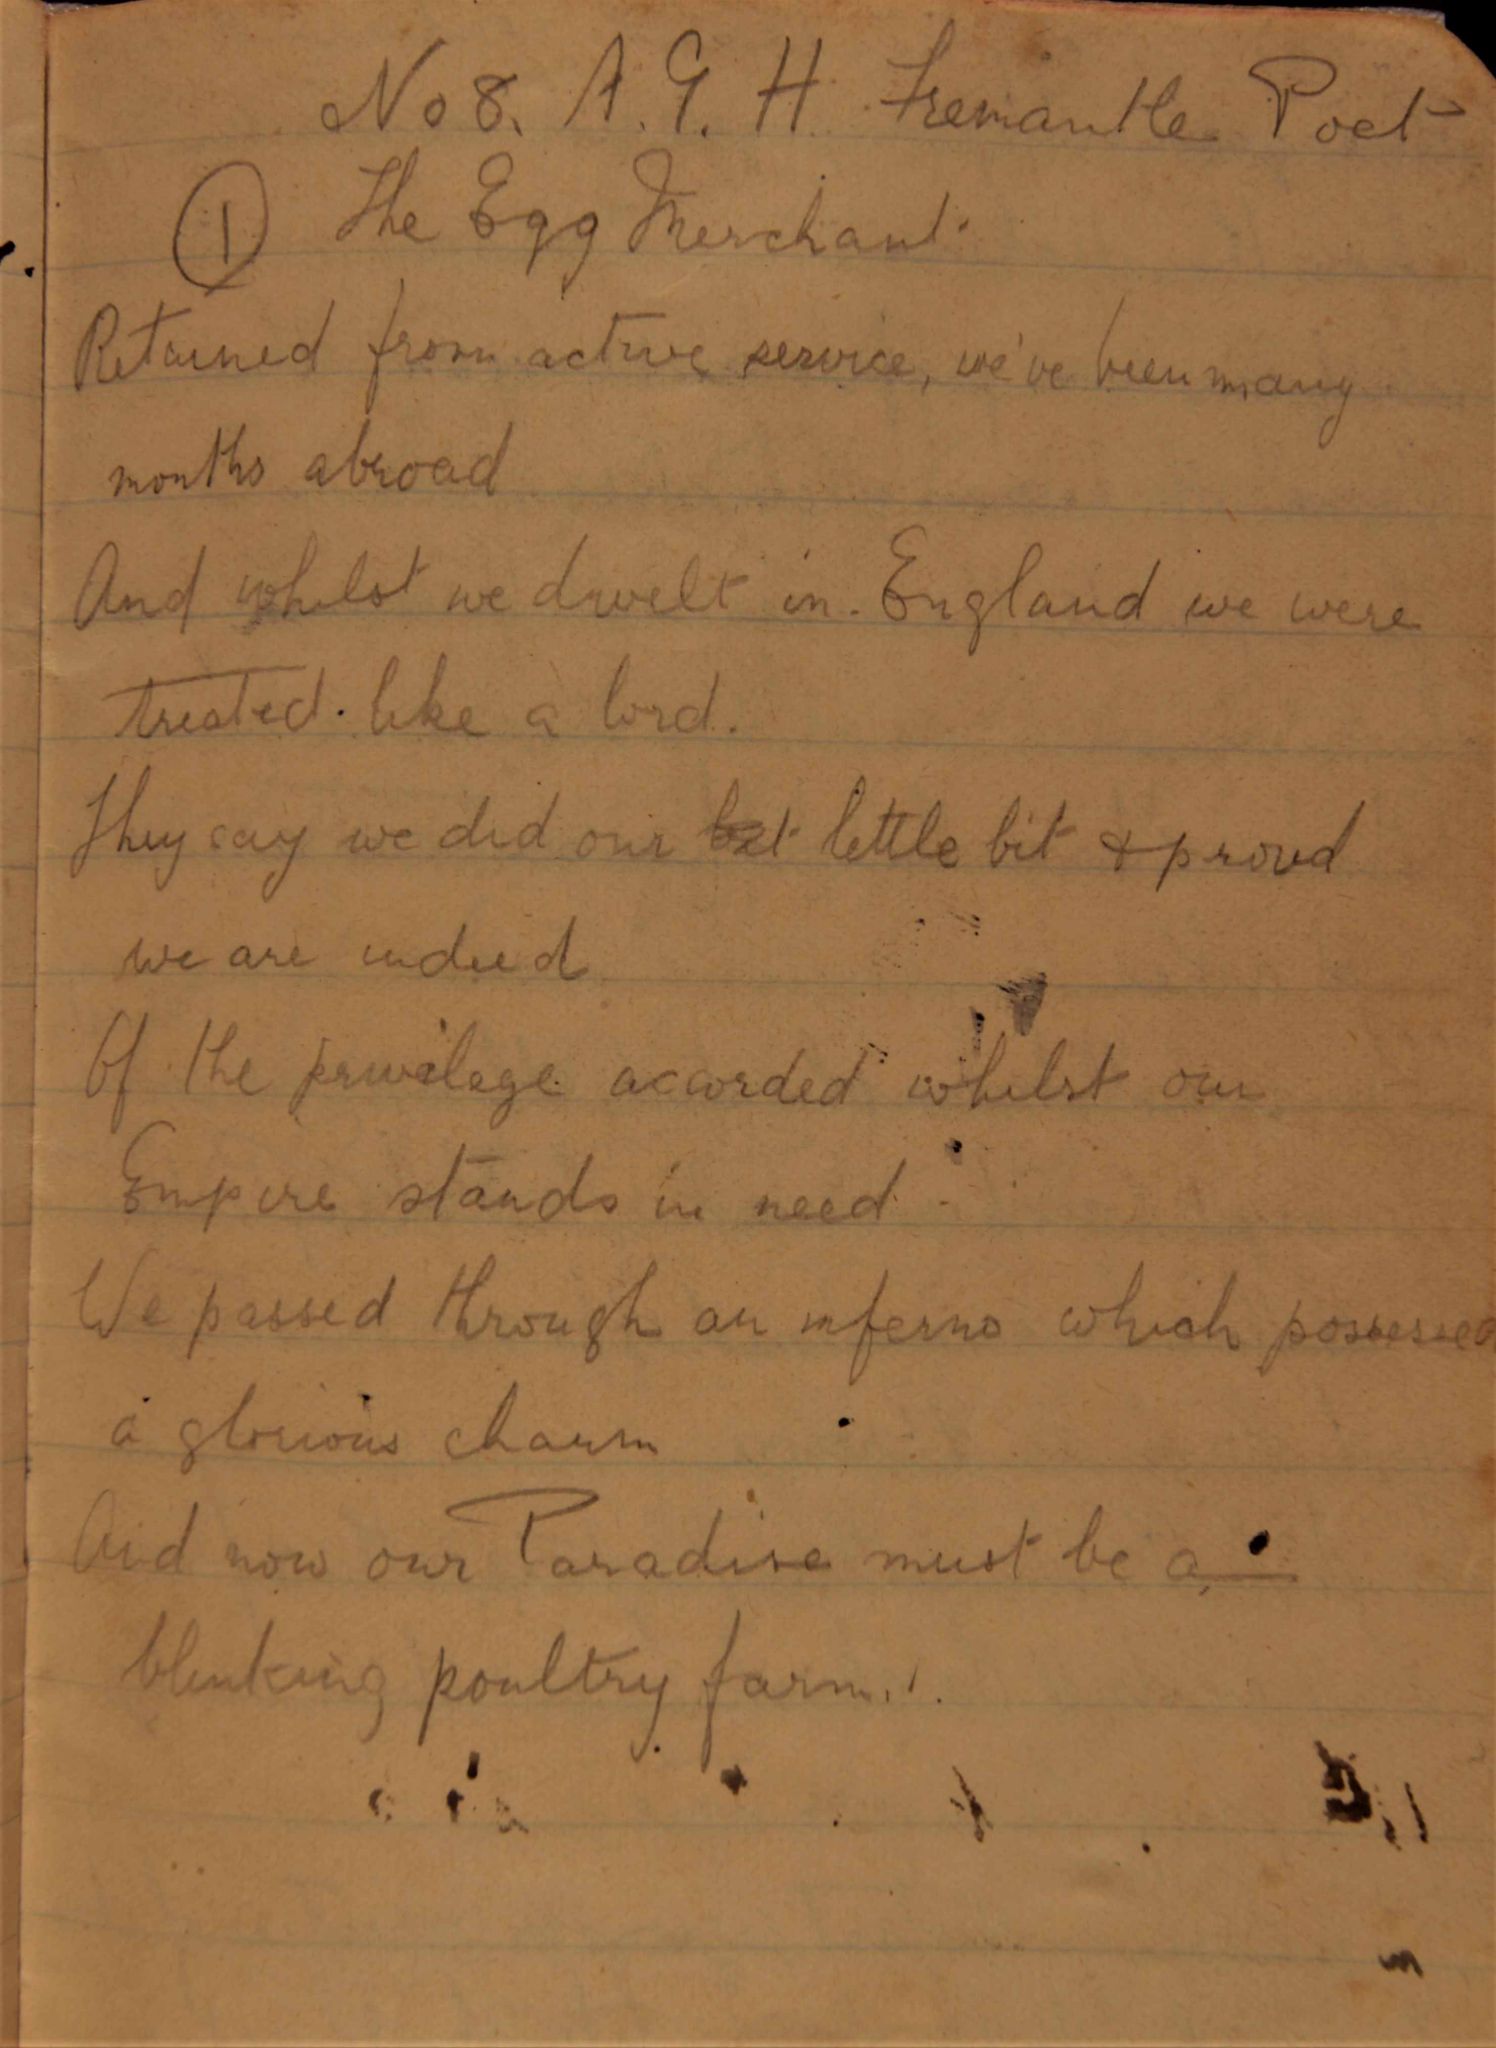 No 8. A. G. H. Fremantle Poet
① The Egg Merchant.
Returned from active service, we've been many
months abroad
And whilst we dwelt in England we were
treated like a lord.
They say we did our little bit & proud
we are indeed
Of the privilege accorded whilst our
Empire stands in need
We passed through an inferno which possessed
a glorious charm
And now our Paradise must be a
blinking poultry farm..